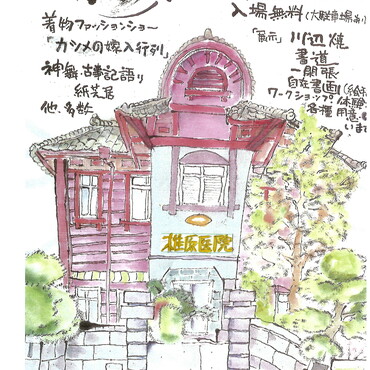 着物ファッションショー
「カツメの嫁入行列」
神舞・古事記語り
紙芝居
他、多数
入場無料(大駐車場あり
「展示」 川辺焼
書道
一閑張
自在書画(絵
ワークショップ。体験
各種用意
いま
椎原医院